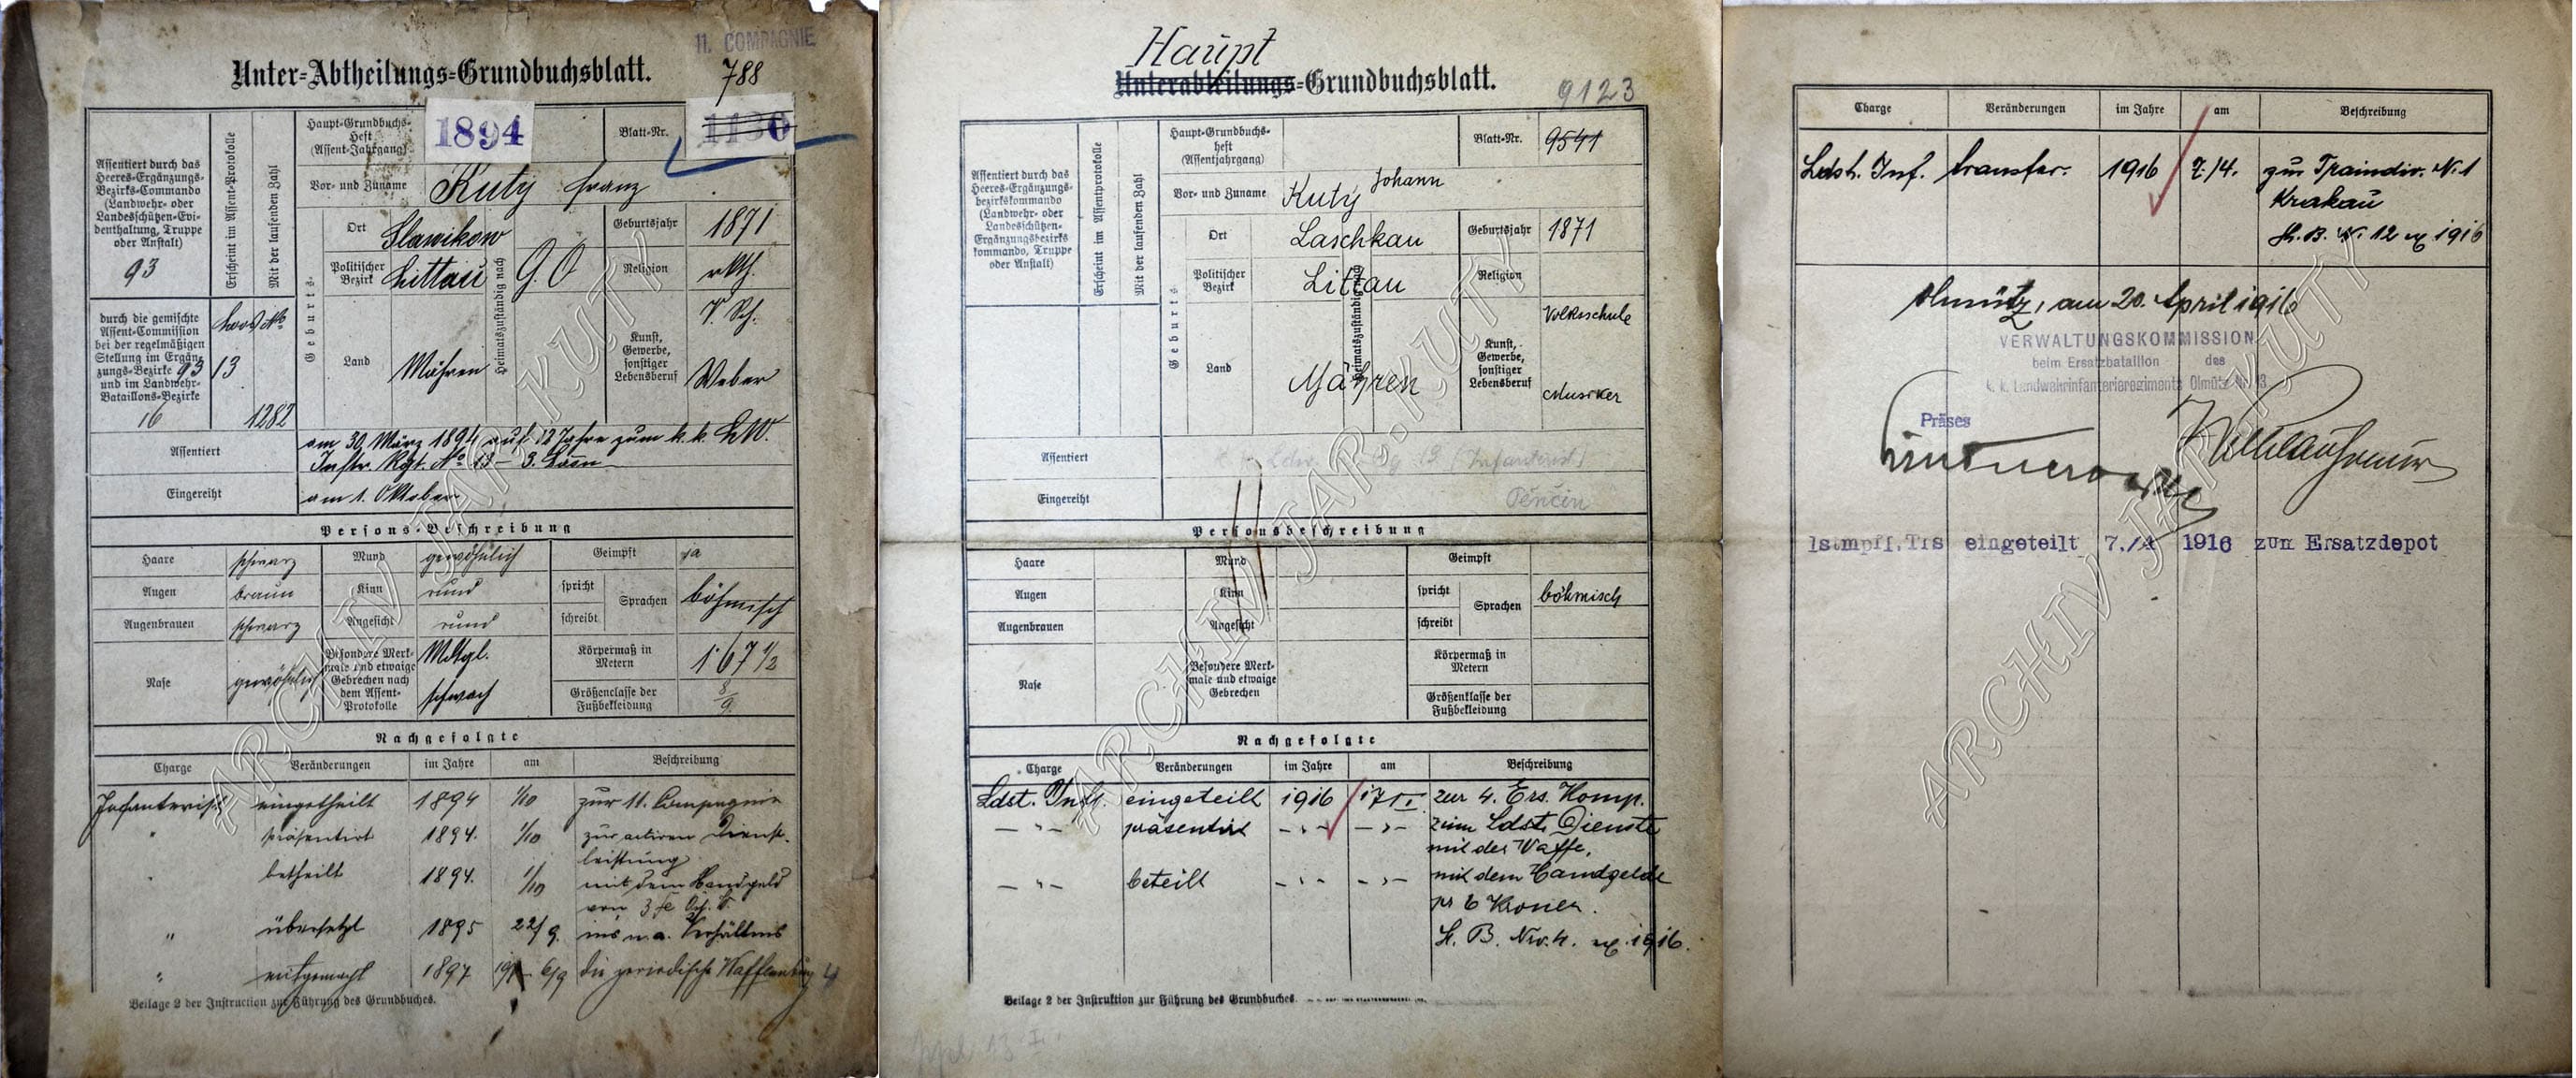 11. COMPAGNIE
Unter-Abtheilungs-Grundbuchsblatt.
788
Assentiert durch das
Heeres-Ergänzungs-
Bezirks-Commando
(Landwehr- oder
Landesschützen-Evi-
denthaltung, Truppe
oder Anstalt)
93
Erscheint im Assent-Protokolle
Mit der laufenden Zahl
Haupt-Grundbuchs-
Heft
(Assent-Jahrgang)
1894
Blatt-Nr.
1130
Vor- und Zuname
Kutý Franz
Geburts-
Ort
Slawikow
Geburtsjahr
1871
Politischer
Bezirk
Littau
Heimatszuständig nach
G. O
Religion
rkth.
Land
Mähren
Kunst,
Gewerbe,
sonstiger
Lebensberuf
V. Sch.
Weber
durch die gemischte
Assent-Commission
bei der regelmäßigen
Stellung im Ergän-
zungs-Bezirke 93
und im Landwehr-
Bataillons-Bezirke
16
13
1282
Assentiert
am 30 März 1894 auf 12 Jahre zum k. k. LW.
Inftr. Rgt. No 13 - 3. Baon
Eingereiht
am 1. Oktober
Persons-Beschreibung
Haare schwarz Mund gewöhnlich Geimpft ja
Augen braun Kinn rund spricht Sprachen böhmisch
Augenbrauen schwarz Angesicht rund schreibt
Nase gewöhnlich
Besondere Merk-
male und etwaige
Gebrechen nach
dem Assent-
Protokolle
schwach
Körpermaß in
Metern
1·67 1/2
Größenclasse der
Fußbekleidung
8/9
Nachgefolgte
Charge Veränderungen im Jahre am Beschreibung
Infanterist eingetheilt 1894 1/10 zur 11. Compagnie
" präsentirt 1894. 1/10 zur activen Dienst-
leistung
" betheilt 1894. 1/10 mit dem Handgeld
von 3 fl
" übersetzt 1895 22/9. ins n. a. Verhältnis
" mitgemacht 1897 6/9 die periodische Waffenübung
Beilage 2 der Instruction zur Führung des Grundbuches.
Haupt
Unterabteilungs-Grundbuchsblatt.
9123
Assentiert durch das
Heeres-Ergänzungs-
bezirkskommando
(Landwehr- oder
Landesschützen-
Ergänzungsbezirks
kommando, Truppe
oder Anstalt)
Erscheint im Assentprotokolle
Mit der laufenden Zahl
Haupt-Grundbuchs-
heft
(Assentjahrgang)
Blatt-Nr.
9541
Vor- und Zuname
Kutý Johann
Geburts-
Ort
Laschkau
Geburtsjahr
1871
Politischer
Bezirk
Littau
Heimatszuständig nach
Religion
Land
Mähren
Kunst,
Gewerbe,
sonstiger
Lebensberuf
Volksschule
Musiker
Assentiert
Eingereiht
Pěnčin
Personsbeschreibung
Haare Mund Geimpft
Augen Kinn spricht Sprachen böhmisch
Augenbrauen Angesicht schreibt
Nase
Besondere Merk-
male und etwaige
Gebrechen
Körpermaß in
Metern
Größenklasse der
Fußbekleidung
Nachgefolgte
Charge Veränderungen im Jahre am Beschreibung
Ldst. Inft. eingeteilt 1916 17/I. zur 4. Ers. Komp.
— " — präsentirt — " — — " — zum Ldst. Dienste
mit der Waffe,
— " — beteilt — " — — " — mit dem Handgelde
pr 6 Kronen.
H. B. Nro. 4. ex 1916.
Beilage 2 der Instruktion zur Führung des Grundbuches.
Charge Veränderungen im Jahre am Beschreibung
Ldst. Inf. transfer. 1916 7./4. zur Traindiv. N. 1
Krakau
H. B. N. 12 ex 1916
Olmütz, am 20. April 1916
VERWALTUNGSKOMMISSION
beim Ersatzbataillon des
k. k. Landwehrinfanterieregiments Olmütz Nr. 13.
Präses
lstmpfl. Trs eingeteilt 7./4 1916 zum Ersatzdepot
ARCHIV JAR. KUTÝ
ARCHIV JAR. KUTÝ
ARCHIV JAR. KUTÝ